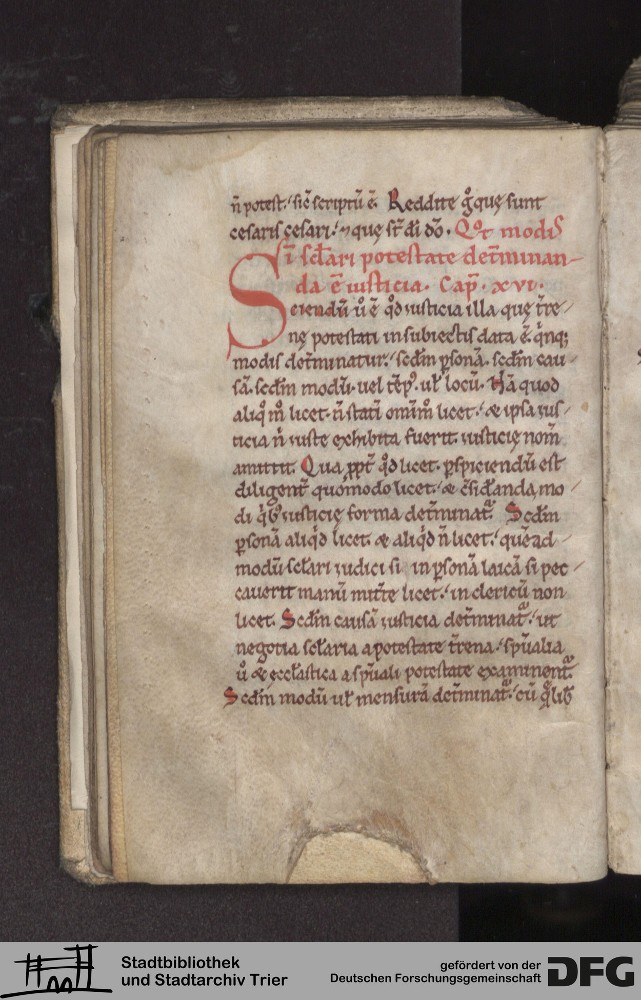 n̄ potest. sic̄ scriptū ē. Reddite g̊ quę sunt
cesaris cesari. ⁊ quę st̄ dī dō. Qͦt modis
Sī sclari potestate det̄minan-
da ē iusticia. Cap̄. xvi.
Sciendū ū ē qd̊ iusticia illa quę t̄re-
nę potestati in subiectis data ē. q̄nq;
modis det̄minatur. scdm psonā. scdm cau-
sā. scdm modū. vel tēp̄. ul̄ locū. Nā quod
aliqͦ m̊ licet. n̄ statī om̄i m̊ licet. & ipsa ius-
ticia n̄ iuste exhibita fuerit. iusticię nom̄
amittit. Qua ppt̄ qd̊ licet. pspiciendū est
diligent̄ quomodo licet. & c̄sid̄anda mo-
di qib; iusticię forma det̄minat᷑. Scdm
psonā aliqd̊ licet. & aliqd̊ n̄ licet. quēad-
modū sclari iudici si in psonā laicā si pec-
cauerit manū mitt̄e licet. in clericū non
licet. Scdm causā iusticia det̄minat᷑. ut
negotia sclaria a potestate t̄rena. spūalia
ū & ecclastica a spūali potestate examinent᷑.
Scdm modū ul̄ mensurā det̄minat᷑. cū qlib;
Stadtbibliothek
und Stadtarchiv Trier
gefördert von der
Deutschen Forschungsgemeinschaft
DFG